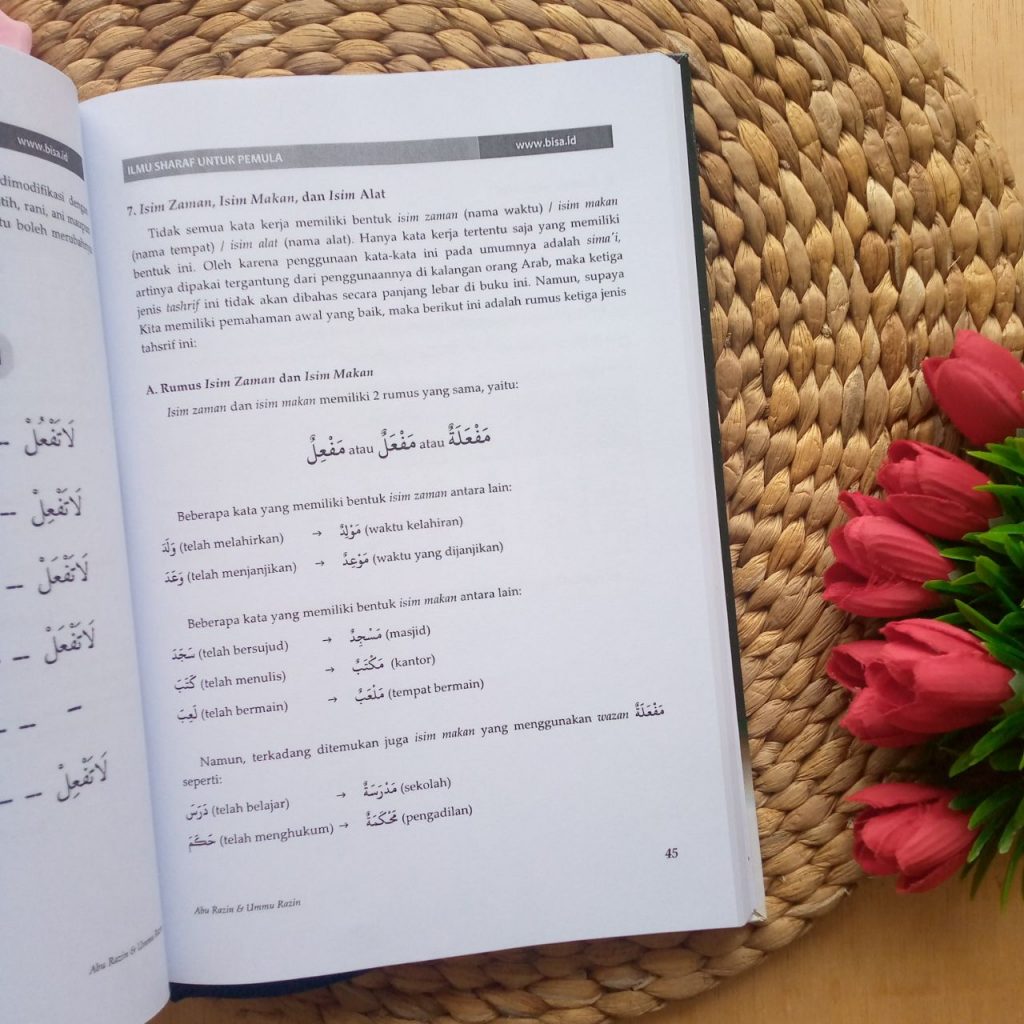 www.bisa.id
dimodifikasi dengan
tih, rani, ani maupun
tu boleh merubahnya
لَاتَفْعُلْ –
– لَاتَفْعِلْ
– لَاتَفْعَلْ
– لَاتَفْعَلْ
– –
– – لَاتَفْعِلْ
Abu Razin & Ummu Razin
ILMU SHARAF UNTUK PEMULA www.bisa.id
7. Isim Zaman, Isim Makan, dan Isim Alat
Tidak semua kata kerja memiliki bentuk isim zaman (nama waktu) / isim makan
(nama tempat) / isim alat (nama alat). Hanya kata kerja tertentu saja yang memiliki
bentuk ini. Oleh karena penggunaan kata-kata ini pada umumnya adalah sima'i,
artinya dipakai tergantung dari penggunaannya di kalangan orang Arab, maka ketiga
jenis tashrif ini tidak akan dibahas secara panjang lebar di buku ini. Namun, supaya
Kita memiliki pemahaman awal yang baik, maka berikut ini adalah rumus ketiga jenis
tahsrif ini:
A. Rumus Isim Zaman dan Isim Makan
Isim zaman dan isim makan memiliki 2 rumus yang sama, yaitu:
مَفْعِلٌ atau مَفْعَلٌ atau مَفْعَلَةٌ
Beberapa kata yang memiliki bentuk isim zaman antara lain:
وَلَدَ (telah melahirkan) → مَوْلِدٌ (waktu kelahiran)
وَعَدَ (telah menjanjikan) → مَوْعِدٌ (waktu yang dijanjikan)
Beberapa kata yang memiliki bentuk isim makan antara lain:
سَجَدَ (telah bersujud) → مَسْجِدٌ (masjid)
كَتَبَ (telah menulis) → مَكْتَبٌ (kantor)
لَعِبَ (telah bermain) → مَلْعَبٌ (tempat bermain)
Namun, terkadang ditemukan juga isim makan yang menggunakan wazan مَفْعَلَةٌ
seperti:
دَرَسَ (telah belajar) → مَدْرَسَةٌ (sekolah)
حَكَمَ (telah menghukum) → مَحْكَمَةٌ (pengadilan)
45
Abu Razin & Ummu Razin